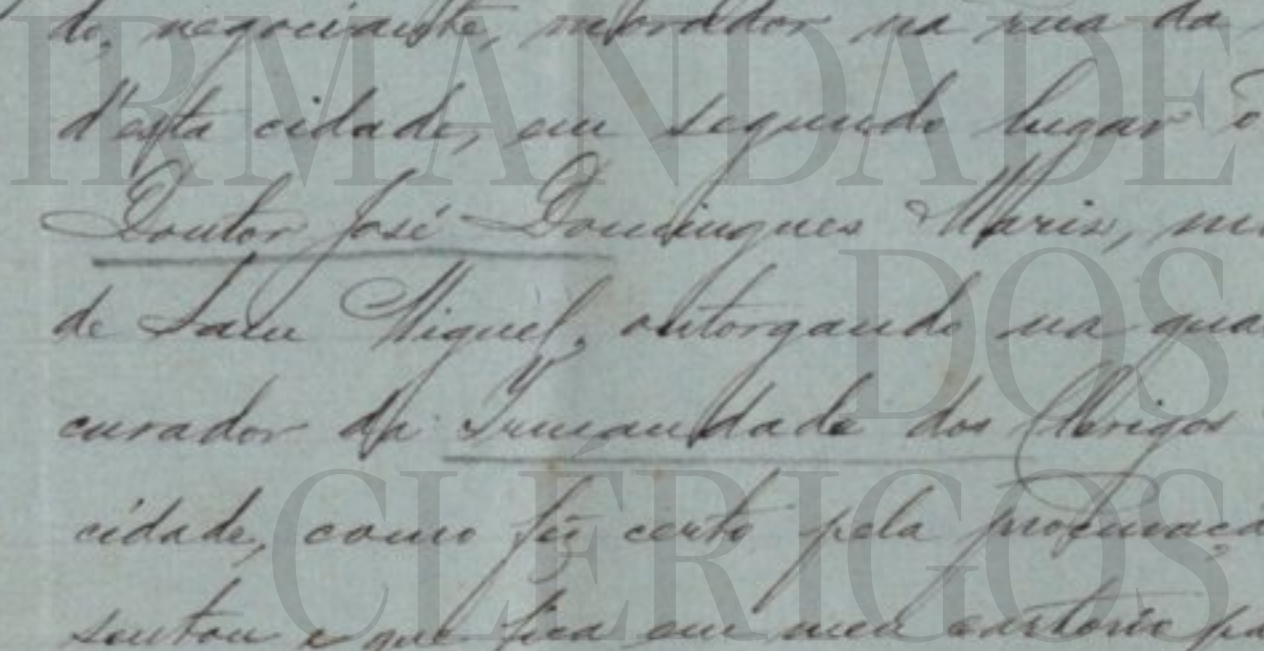 do, negociante, morador na rua da
d'esta cidade, em segundo lugar o
Doutor José Domingues Mariz, mo
de Sam Miguel, outorgando na qua
curador da Irmandade dos Clerigos
cidade, como fiz certo pela procuraçã
sentou e que fica em meu cartorio pa
IRMANDADE
DOS
CLÉRIGOS